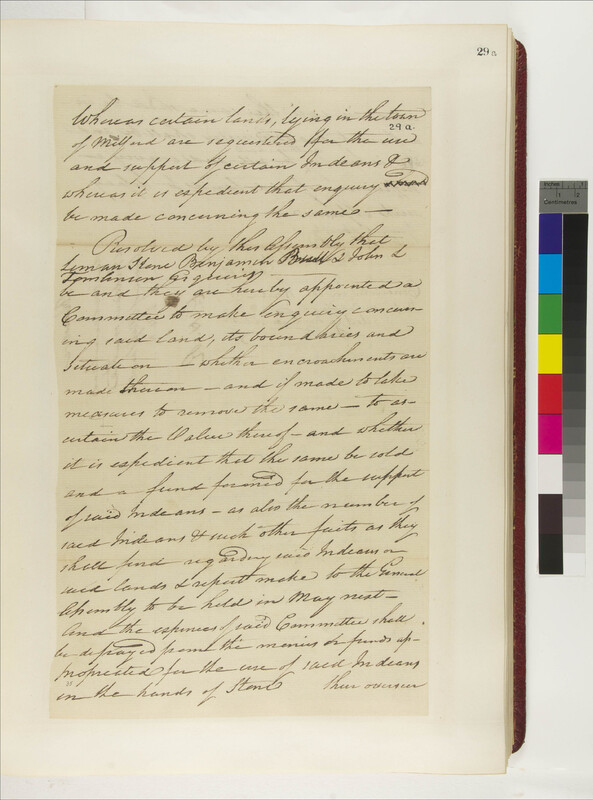 29a
Whereas certain lands, lying in the town
29 a.
of Milford are sequestered for the use
and support of certain Indeans &
whereas it is expedient that enquiry
be made concerning the same —
Resolved by this Assembly that
Leman Stone Benjamin & John L
Tomlinson Esquires
be and they are hereby appointed a
Committee to make enquiry concern-
ing said land, its boundaries and
Situation — whether encroachments are
made thereon — and if made to take
measures to remove the same — to as-
certain the Value thereof — and whether
it is expedient that the same be sold
and a fund formed for the support
of said Indeans — as also the number of
said Indeans & such other facts as they
shall find regarding said Indeans or
said lands & report make to the General
Assembly to be held in May next —
And the expences of said Committee shall
be defrayed from the monies or funds ap-
propriated for the use of said Indeans
in the hands of Stone their overseer
Inches
Centimetres